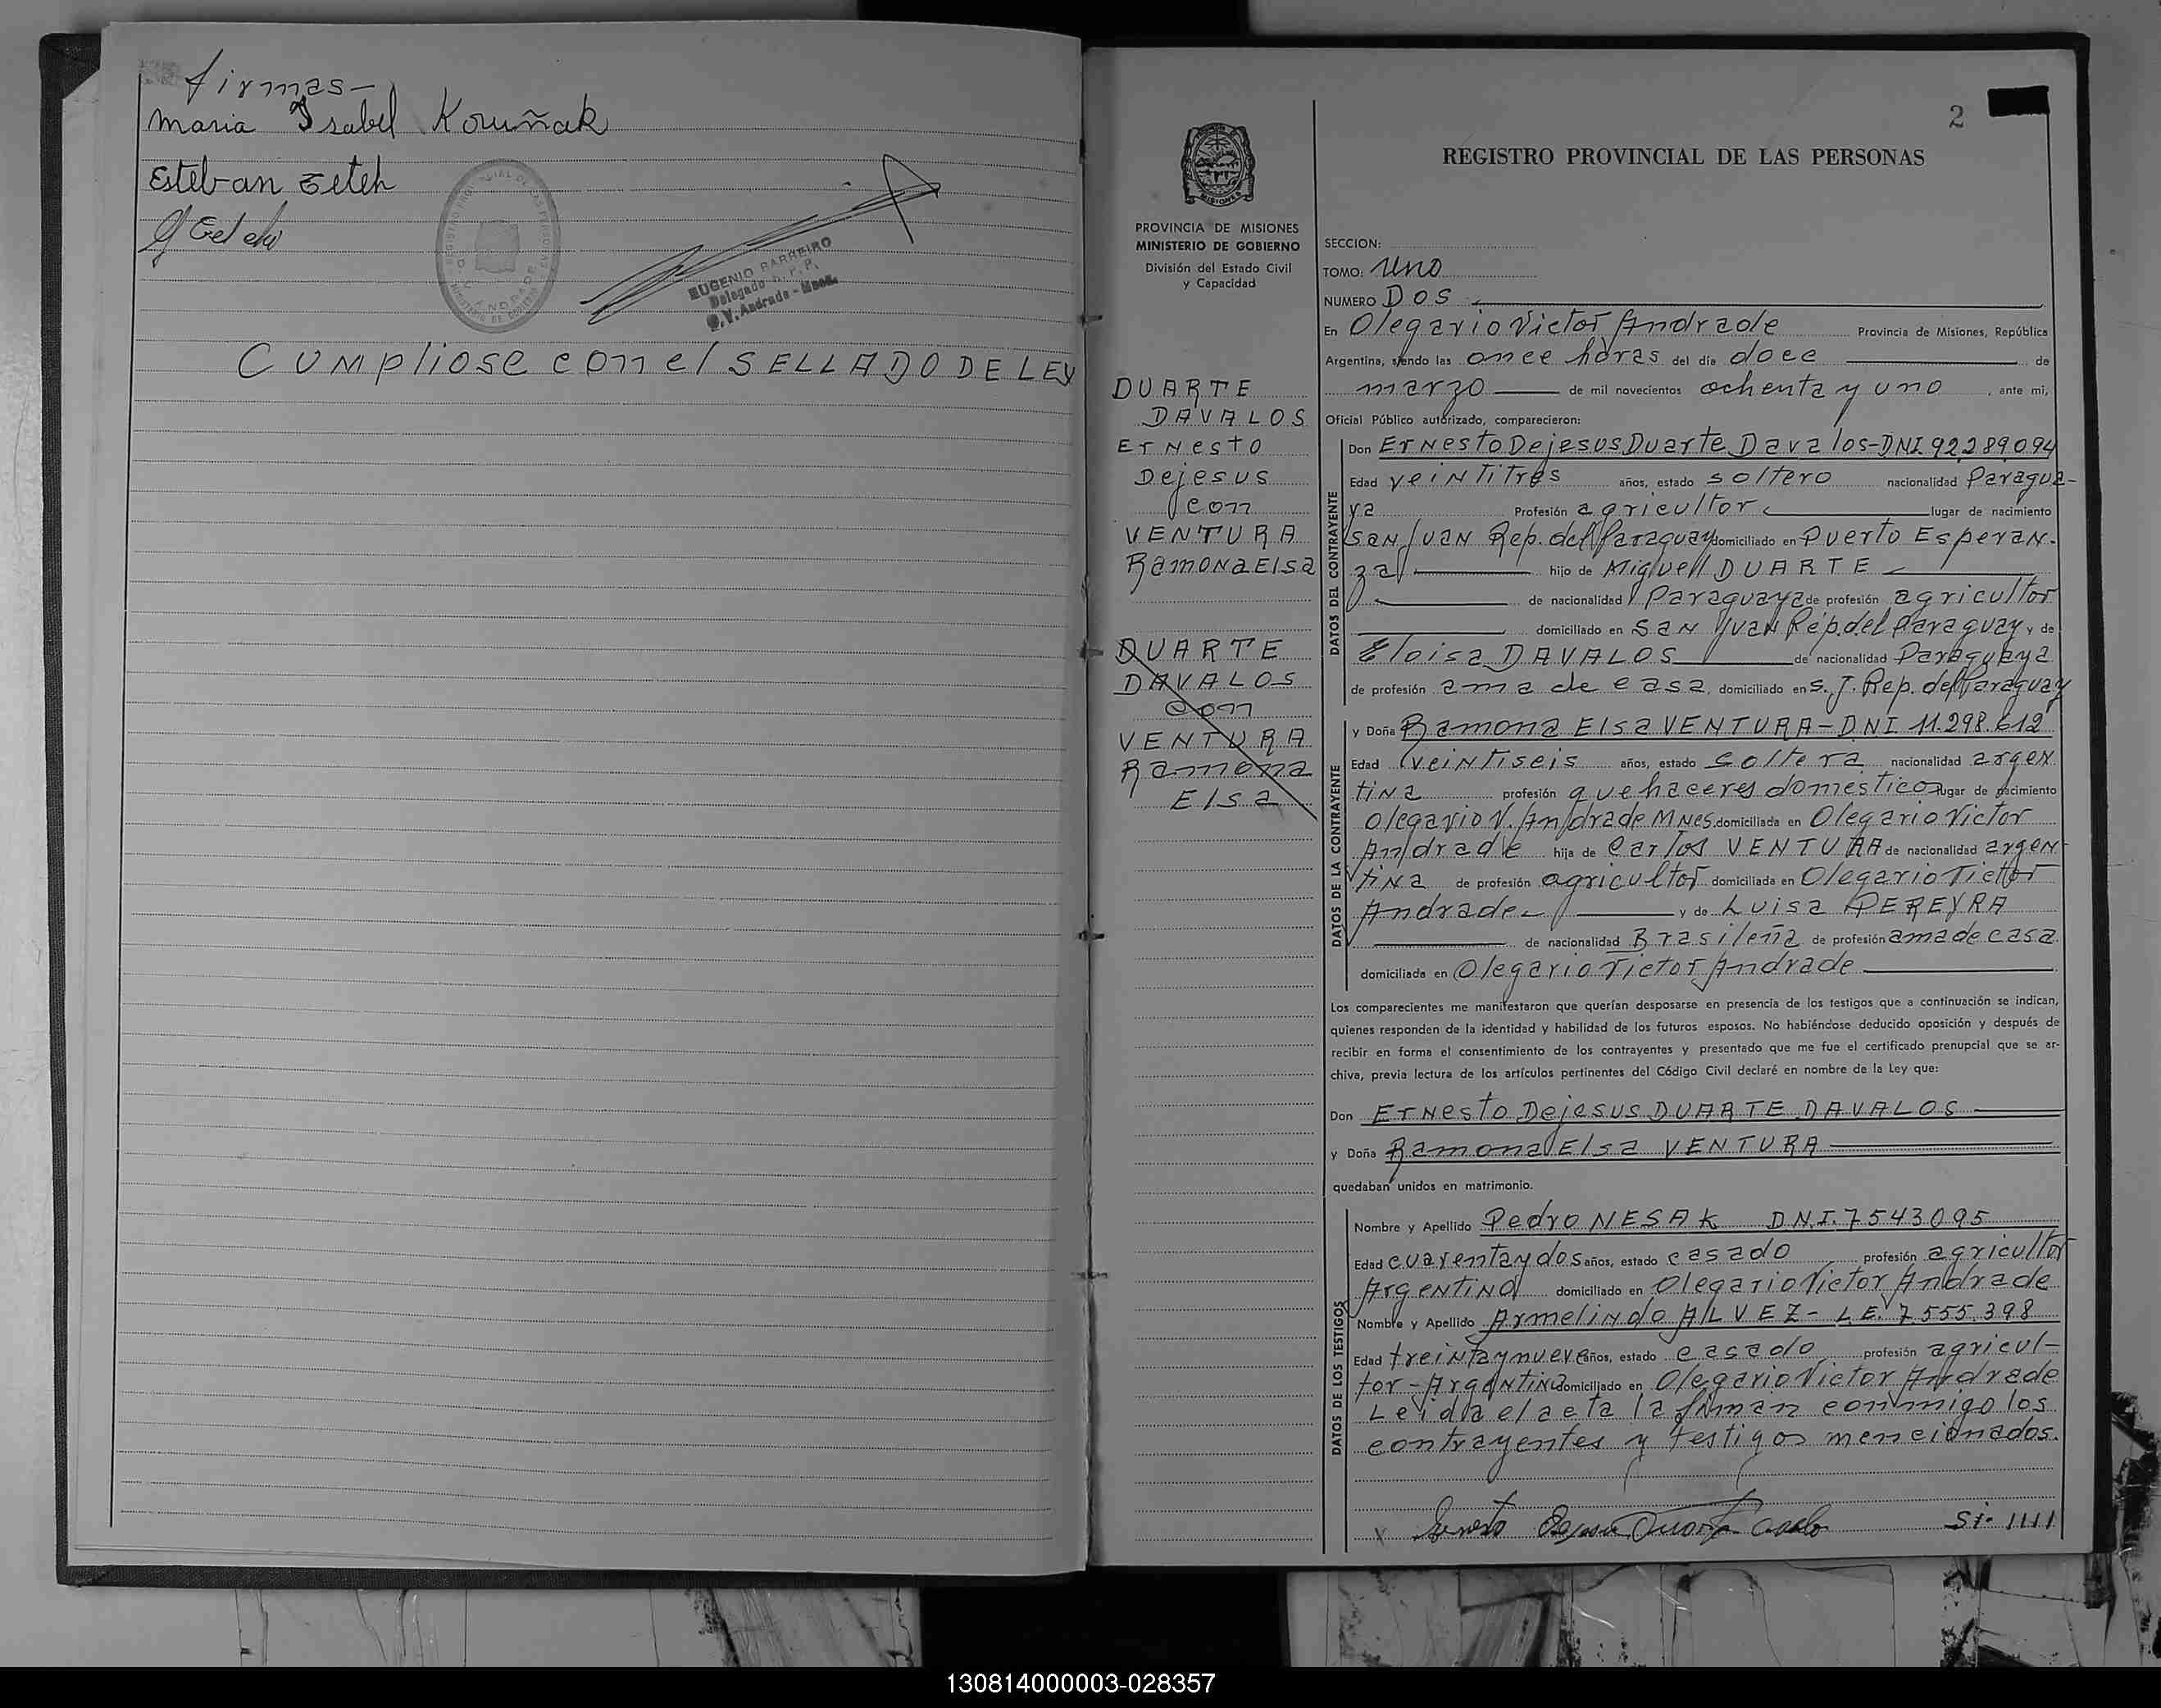 firmas-
Maria Isabel
Esteban
EUGENIO BARREIRO
Delegado R. P. P.
O. V. Andrade - Mnes.
CUMpliose con el SELLADO DE LEY
2
REGISTRO PROVINCIAL DE LAS PERSONAS
MISIONES
PROVINCIA DE MISIONES
MINISTERIO DE GOBIERNO
División del Estado Civil
y Capacidad
DUARTE
DAVALOS
Ernesto
Dejesus
con
VENTURA
Ramona Elsa
DUARTE
DAVALOS
con
VENTURA
Ramona
Elsa
SECCION:
TOMO: Uno
NUMERO DOS
En Olegario Victor Andrade Provincia de Misiones, República
Argentina, siendo las once horas del día doce de
marzo de mil novecientos ochenta y uno, ante mi,
Oficial Público autorizado, comparecieron:
DATOS DEL CONTRAYENTE
Don Ernesto Dejesus Duarte Davalos-DNI 92289094
Edad veintitres años, estado soltero nacionalidad Paragua-
ya Profesión agricultor lugar de nacimiento
San Juan Rep. del Paraguay domiciliado en Puerto Esperan-
za hijo de Miguel DUARTE
de nacionalidad Paraguaya de profesión agricultor
domiciliado en San Juan Rep. del Paraguay y de
Eloisa DAVALOS de nacionalidad Paraguaya
de profesión ama de casa, domiciliado en S. J. Rep. del Paraguay
DATOS DE LA CONTRAYENTE
y Doña Ramona Elsa VENTURA-DNI 11.298.612
Edad veintiseis años, estado soltera nacionalidad argen
tina profesión quehaceres domesticos lugar de nacimiento
Olegario V. Andrade Mnes. domiciliada en Olegario Victor
Andrade hija de Carlos VENTURA de nacionalidad argen
tina de profesión agricultor domiciliada en Olegario Victor
Andrade y de Luisa PEREYRA
de nacionalidad Brasileña de profesión ama de casa
domiciliada en Olegario Victor Andrade
Los comparecientes me manifestaron que querían desposarse en presencia de los testigos que a continuación se indican,
quienes responden de la identidad y habilidad de los futuros esposos. No habiéndose deducido oposición y después de
recibir en forma el consentimiento de los contrayentes y presentado que me fue el certificado prenupcial que se ar-
chiva, previa lectura de los artículos pertinentes del Código Civil declaré en nombre de la Ley que:
Don Ernesto Dejesus DUARTE DAVALOS
y Doña Ramona Elsa VENTURA
quedaban unidos en matrimonio.
DATOS DE LOS TESTIGOS
Nombre y Apellido Pedro NESAK DN.I. 7543095
Edad cuarenta y dos años, estado casado profesión agricultor
Argentino domiciliado en Olegario Victor Andrade
Nombre y Apellido Armelindo ALVEZ- L.E. 7.555.398
Edad treinta y nueve años, estado casado profesión agricul-
tor-Argentino domiciliado en Olegario Victor Andrade
Leida el acta la firman conmigo los
contrayentes y testigos mencionados.
Si- 1111
130814000003-028357